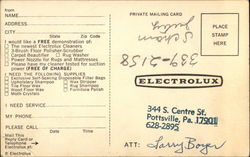 from
NAME
ADDRESS
CITY
State Zip Code
I would like a FREE demonstration of:
The newest Electrolux Cleaners
3-Brush Floor Polisher-Scrubber
Carpet Beautifier Rug Washer
Power Nozzle for Rugs and Mattresses
Please have my cleaner tested for suction power (FREE OF CHARGE)
I NEED THE FOLLOWING SUPPLIES
Exclusive Self-Sealing Disposable Filter Bags
Upholstery Shampoo Rug Shampoo
Wax Stripper
Floor Wax Furniture Polish
Moth Crystals
I NEED SERVICE
MY PHONE
PLEASE CALL
Date Time
Mail This Reply Card or Telephone
Electrolux
PRIVATE MAILING CARD
PLACE STAMP HERE
339-2158
ELECTROLUX
344 S. Centre St.
Pottsville, Pa. 17901
628-2895
ATT: Larry Boyer